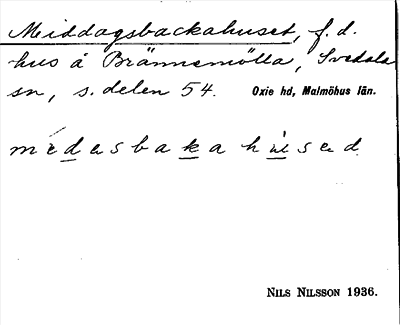 Middagsbackahuset, f.d.
hus å Brännemölla, Svedala
sn, s. delen 54. Oxie hd, Malmöhus län.
médasbaka husad
NILS NILSSON 1936.